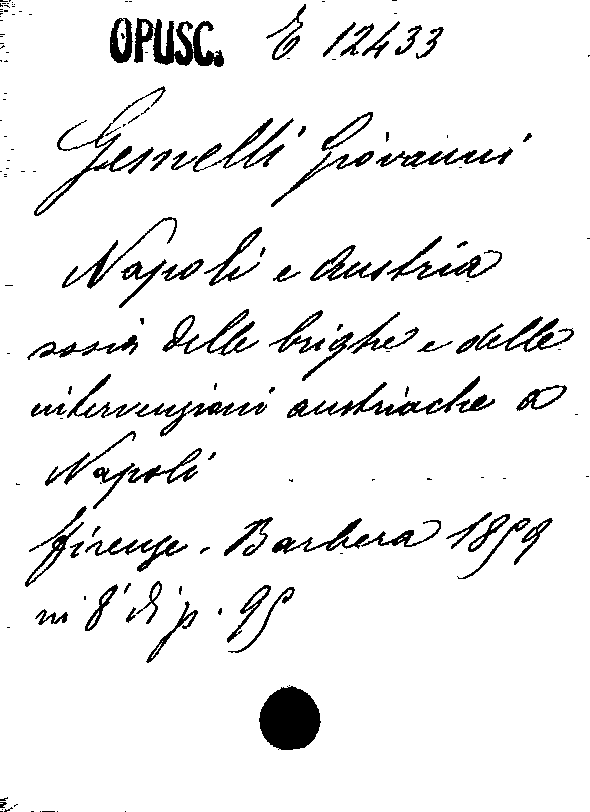 OPUSC. E 12433
Gemelli Giovanni
Napoli e Austria
ossia delle brighe e delle
intervenzioni austriache a
Napoli
Firenze. Barbera 1859
in 8° di p. 95